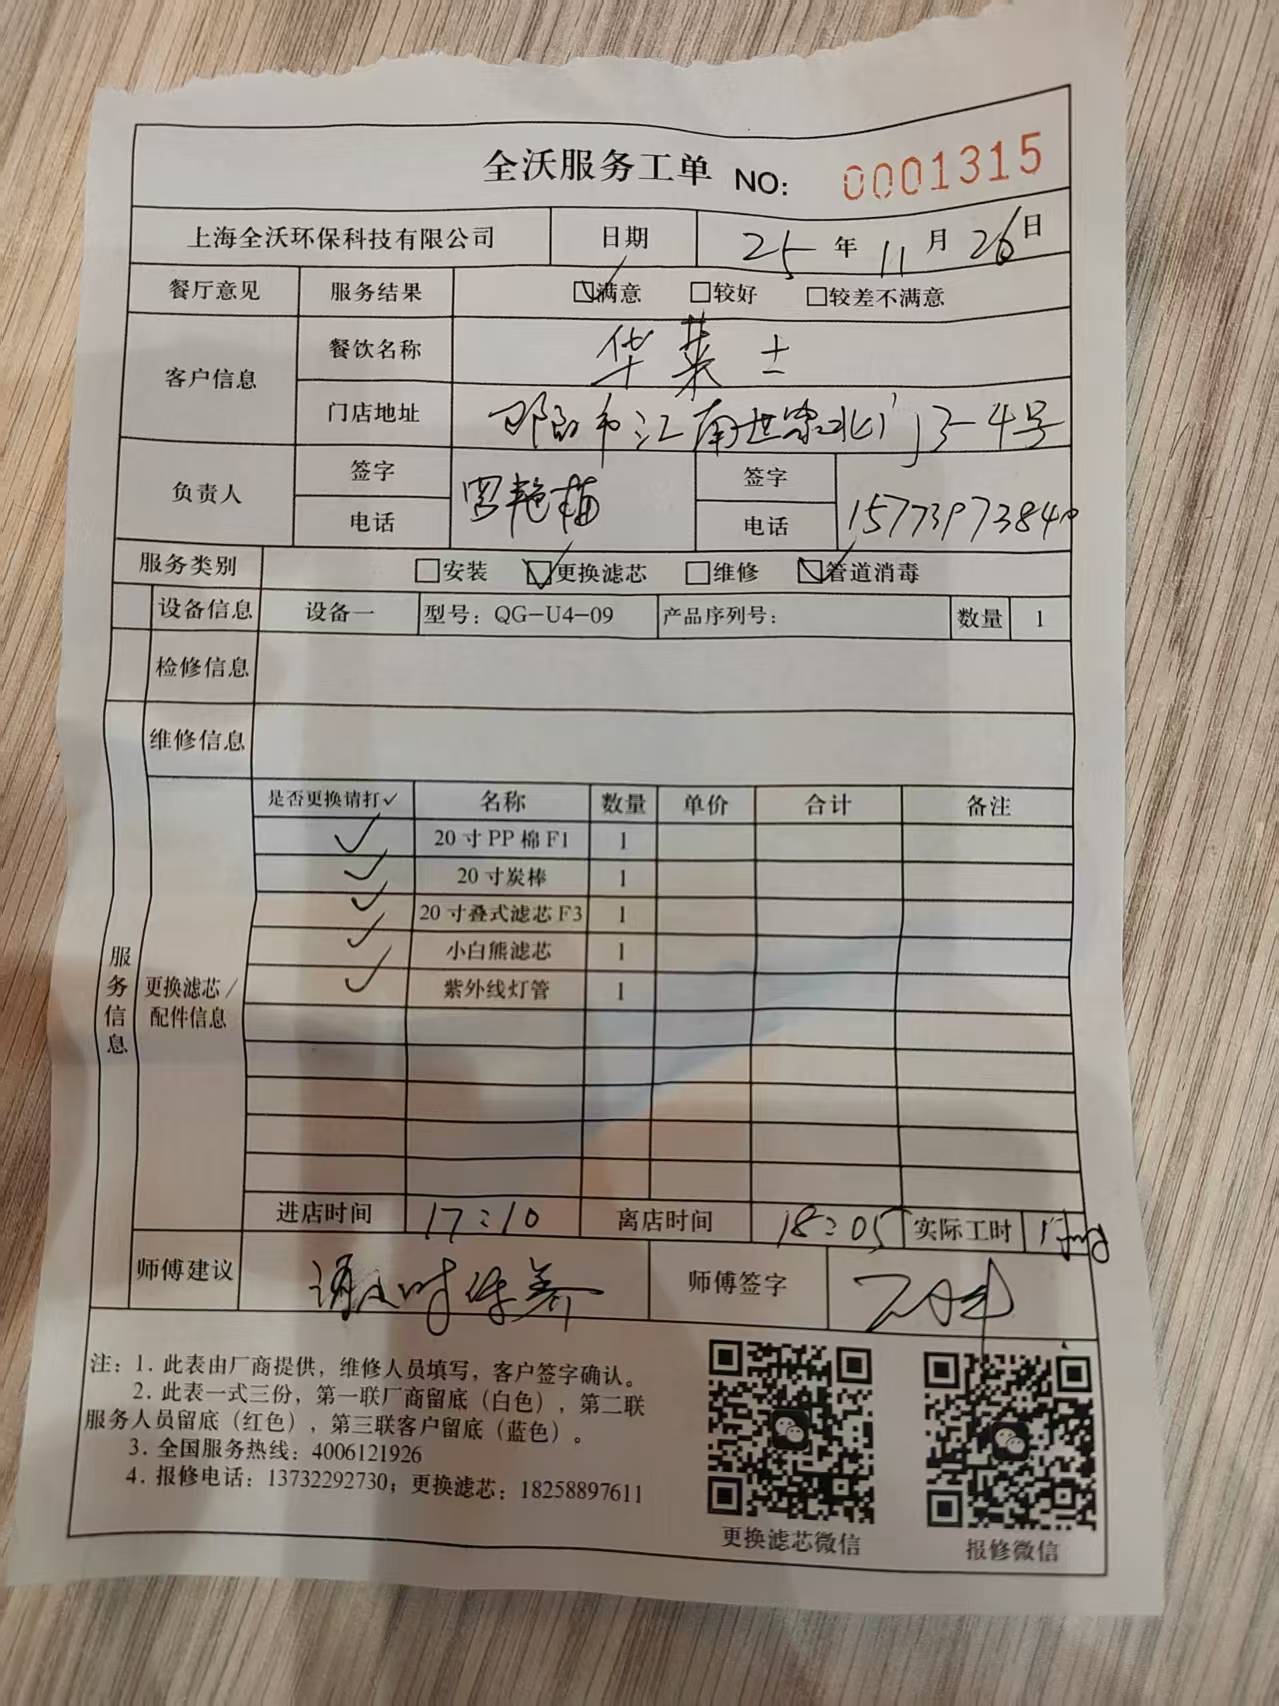 全沃服务工单 NO: 0001315
上海全沃环保科技有限公司 日期 25年11月26日
餐厅意见 服务结果 满意 较好 较差不满意
客户信息 餐饮名称 华莱士
门店地址 邵阳市江南世家北门3-4号
负责人 签字 罗艳梅 签字
电话 电话 1577397384
服务类别 安装 更换滤芯 维修 管道消毒
设备信息 设备一 型号：QG-U4-09 产品序列号： 数量 1
检修信息
维修信息
服务信息
更换滤芯/
配件信息
是否更换请打✓ 名称 数量 单价 合计 备注
✓ 20寸PP棉F1 1
✓ 20寸炭棒 1
✓ 20寸叠式滤芯F3 1
✓ 小白熊滤芯 1
✓ 紫外线灯管 1
进店时间 17:10 离店时间 18:05 实际工时
师傅建议 时保养 师傅签字
注：1. 此表由厂商提供，维修人员填写，客户签字确认。
2. 此表一式三份，第一联厂商留底（白色），第二联
服务人员留底（红色），第三联客户留底（蓝色）。
3. 全国服务热线：4006121926
4. 报修电话：13732292730；更换滤芯：18258897611
更换滤芯微信 报修微信